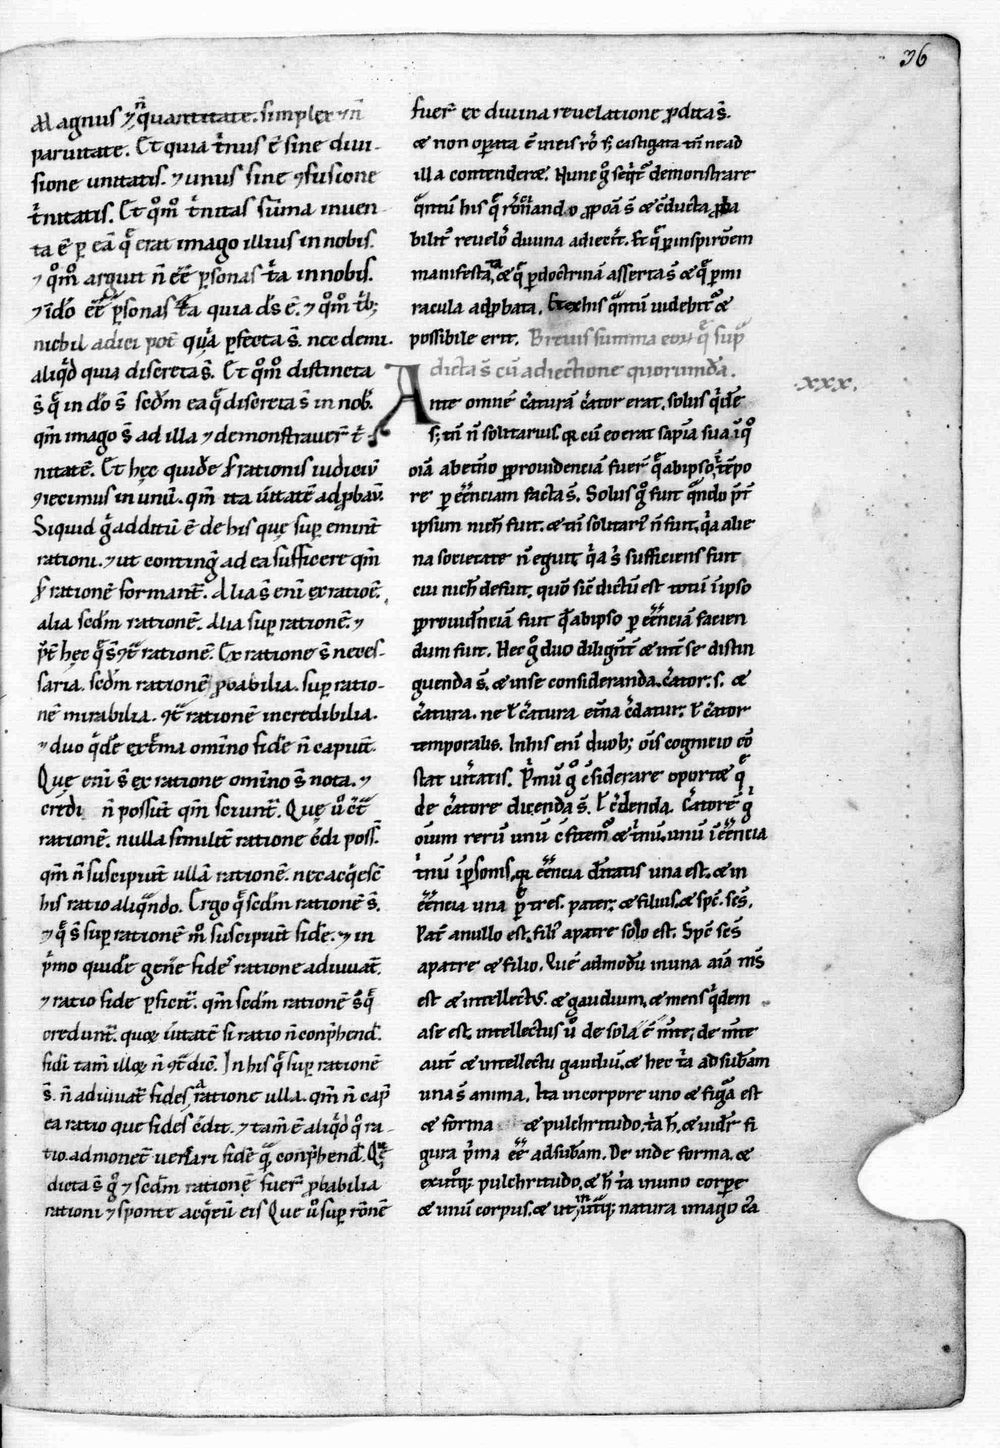 36
Magnus & n̄ quantitate. simplex & n̄
paruitate. Et quia t̓nus ē sine diui-
sione unitatis. & unus sine ɔfusione
t̓nitatis. Et qm̊ t̓nitas sūma inuen
ta ē ꝑ eā q̄ erat imago illius in nobis.
& qm̊ arguit n̄ eē̄ ꝑsonas t̓a in nobis.
& iđo eē̄ ꝑsonas t̓a quia d̄s ē. & qm̊
nichil adici pot̄ quia ꝑfecta s̄. nec demi.
aliq̓d quia discreta s̄. Et qm̊ distincta
s̄ q̄ in dō s̄ secđm ea q̄ discreta s̄ in nob̓.
qm̄ imago s̄ ad illa & demonstrauer̄ t̓
nitatē. Et hęc quidē ẜ rationis iudiciū
ɔiecimus in unū. qm̄ ita ū̓itatē adꝓbau̓.
Siquid g̊ additū ē de his quę suꝑ eminn̄t
rationi. & ut conting̊ ad ea sufficere qm̄
ẜ rationē formant̄. Alia s̄ enī ex ratioē.
alia secđm rationē. Alia suꝑ rationē. &
p̄t̓ hęc q̄ s̄ ɔt̓ rationē. Ex ratione s̄ neces-
saria. secđm rationē ꝓbabilia. suꝑ ratio-
nē mirabilia. ɔt̓ rationē incredibilia.
& duo q̓dē ext̓ma omīno fidē n̄ capiūt.
Quę enī s̄ ex ratione omīno s̄ nota. &
credi n̄ possūt qm̄ sciunt̄. Quę ů ɔt̓
rationē. nulla similit̄ ratione c̓di poss̄.
qm̄ n̄ suscipiūt ullā rationē. nec acq̓esc̄
his ratio aliq̄ndo. Ergo q̄ secđm rationē s̄.
& q̄ s̄ suꝑ rationē m̊ suscipiūt fidē. & in
p̓mo quidē geñe fides ratione adiuuat̄.
& ratio fide ꝑficit̄. qm̄ secđm rationē s̄ q̄
credunt̄. quoꝝ ū̓itatē si ratio n̄ cōnp̓hend̄.
fidi tam̄ illoꝝ n̄ ɔt̓dic̄. In his q̄ suꝑ rationē
s̄. n̄ adiuuat̄ fides ratione ulla. qm̄ n̄ cap̄
ea ratio que fides c̓dit. & tam̄ ē aliq̓d q̊ ra-
tio. admonet̄ uen̄ari fidē q̄ cōnp̓hend̄. Quę
dicta s̄ g̊ & secđm rationē fuer̄ ꝓbabilia
rationi & sponte acq̓eū̓ eis Que ů suꝑ rōnē
fuer̄ ex diuina reuelatione ꝓdita s̄.
& non oꝑata ē in eis rō s; castigata tn̄ ne ad
illa contenderæ. Nunc g̊ seq̓t̄ demonstrare
q̄ntū his q̄ rōn̄ando ꝓposita s̄ & c̄ducta ꝓba
bilit̓ reuelō diuina adiecit̄. Et q̄ ꝑ inspirōem
manifestata, & q̄ ꝑ doctrinā asserta s̄ & q̄ ꝑ mi
racula adꝓbata. Et ex his q̄ntū uidebit̄ &
possibile erit. Breuis summa eoꝝ q̄ sup̄
dicta s̄ cū adiectione quorundā.
xxx.
Ante omnē c̓aturā c̓ator erat. solus q̓dē
s; tn̄ n̄ solitarius. q; cū eo erat sapīa sua ī q̊
oīa ab et̓no ꝑ prouidenciā fuer̄ q̄ ab ipso ī tēpo
re ꝑ eēnciam facta s̄. Solus g̊ fuit q̄ndo p̄t̓
ipsum nich̄ fuit. & tn̄ solitari̓ n̄ fuit, q̓a alie
na societate n̄ eguit, q̓a s̓ sufficiens fuit
cui nich̄ defuit. quō sic̄ dictū est totū ī ipso
ꝑ prouidenciā fuit q̄ ab ipso ꝑ eēnciā facien
dum fuit. Hec g̊ duo diligñt̓ & int̄ se distin
guenda s̄. & in se consideranda. c̓ator. s. &
c̓atura. ne ł c̓atura et̓na c̓datur. ł c̓ator
temporalis. In his enī duob; oīs cognicio cō
stat uītatis. P̓mū g̊ c̄siderare oportæ q̄
de c̓atore dicenda s̄. ł c̓denda. C̓atorē g̊
oīum rerū unū c̄fitem̓ & t̓nū. unū ī eēncia
t̓nū ī ꝑsonis, q; eēncia d̄itatis una est. & in
eēncia una ꝑ̄ tres. pater. & filius. & sp̄c. sc̄s.
Pat̓ a nullo est. fili̓ a patre solo est. Sp̄c sc̄s
a patre & filio. Quē admodū in una aīa m̄s
est & intellectus. & gaudium. & mens q̓dem
a se est. intellectus ů de sola ē m̄te; de m̄te
aut̄ & intellectu gaudiū. & hec t̓a ad subām
una s̄ anima. Ita in corpore uno & figura est
& forma & pulchritudo. t̓a h̄. & uidet̄ fi
gura p̓ma eē̄ ad subam. De inde forma. &
ex utq̓; pulchritudo. & h̄ t̓a in uno corpe
& unū corpus. & ut in utq̓; natura imago